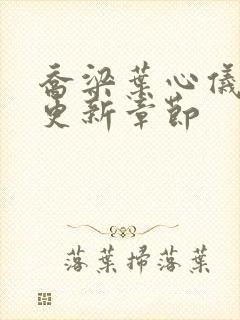 喬梁葉心儀
更新章節
落葉掃落葉